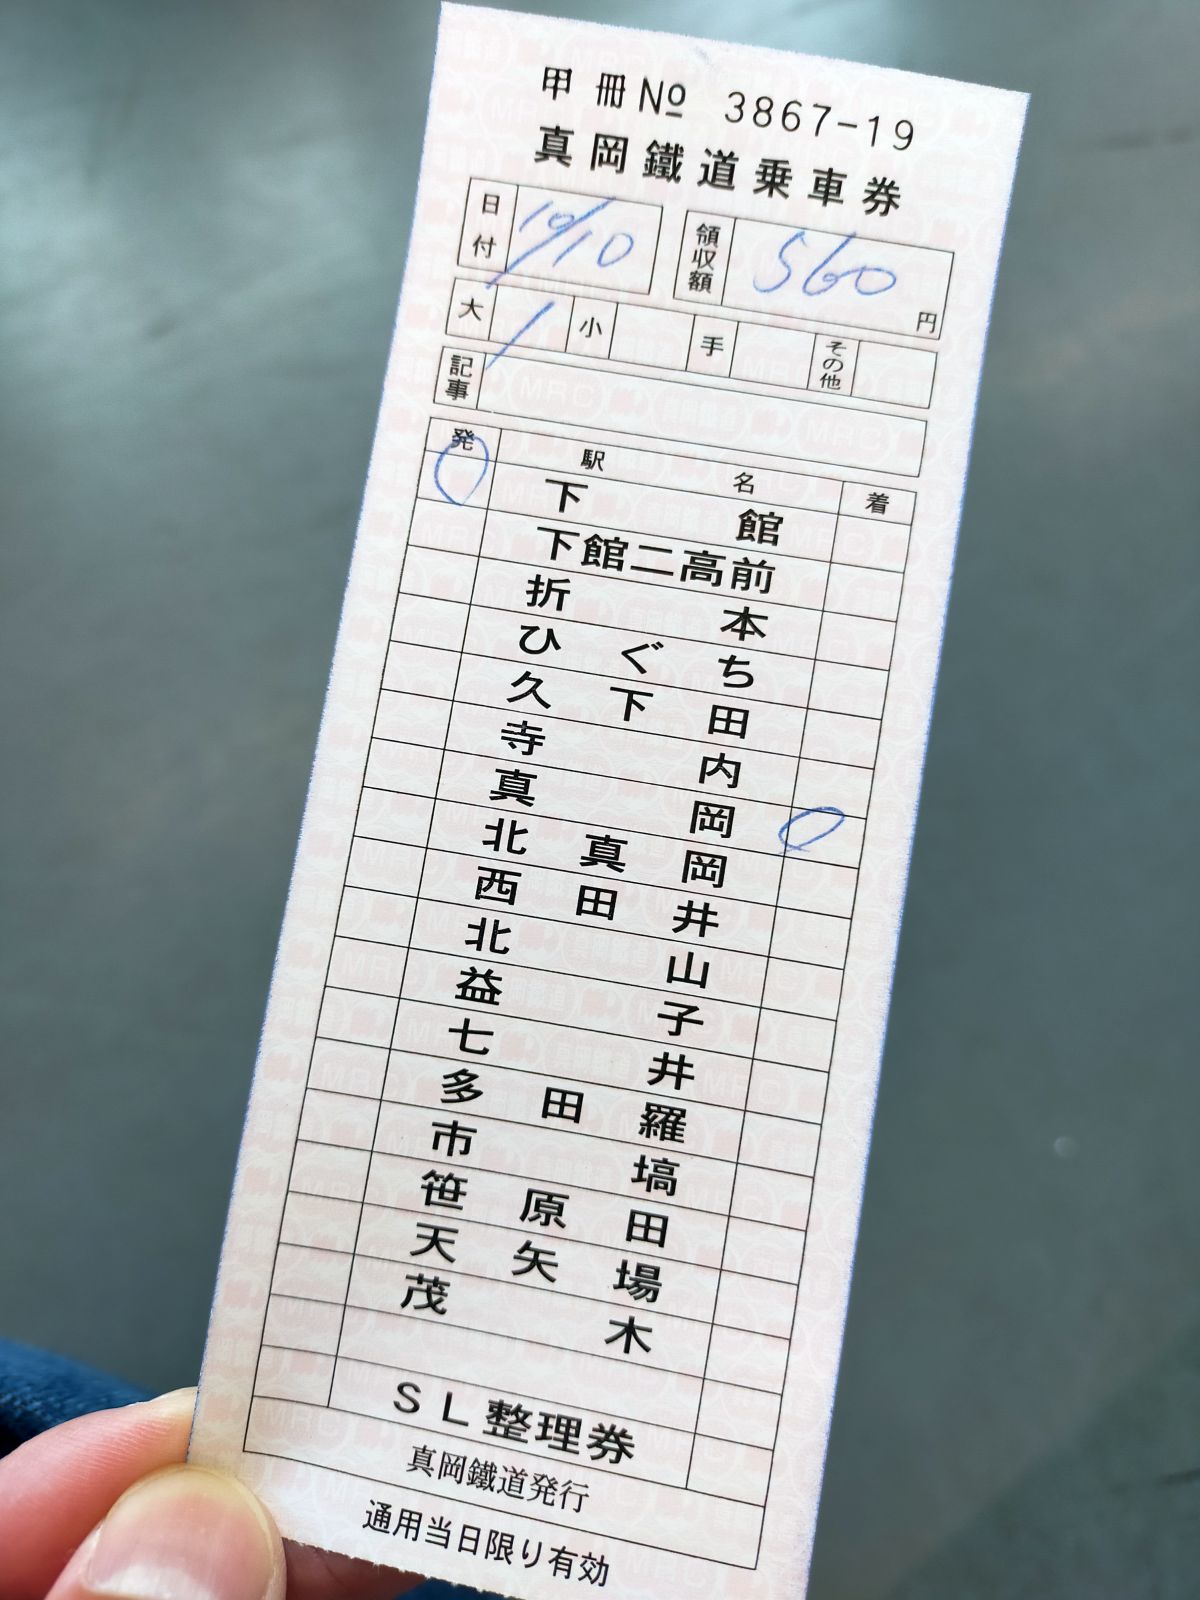 甲 冊 No 3867-19
真岡鐵道乗車券
日付 10/10 領収額 560円
大 1 小 手 その他
記事
発 駅名 着
下館
下館二高前
折本
ひぐち
久下田
寺内
真岡
北真岡
西田井
北山
益子
七井
多田羅
市塙
笹原田
天矢場
茂木
SL整理券
真岡鐵道発行
通用当日限り有効